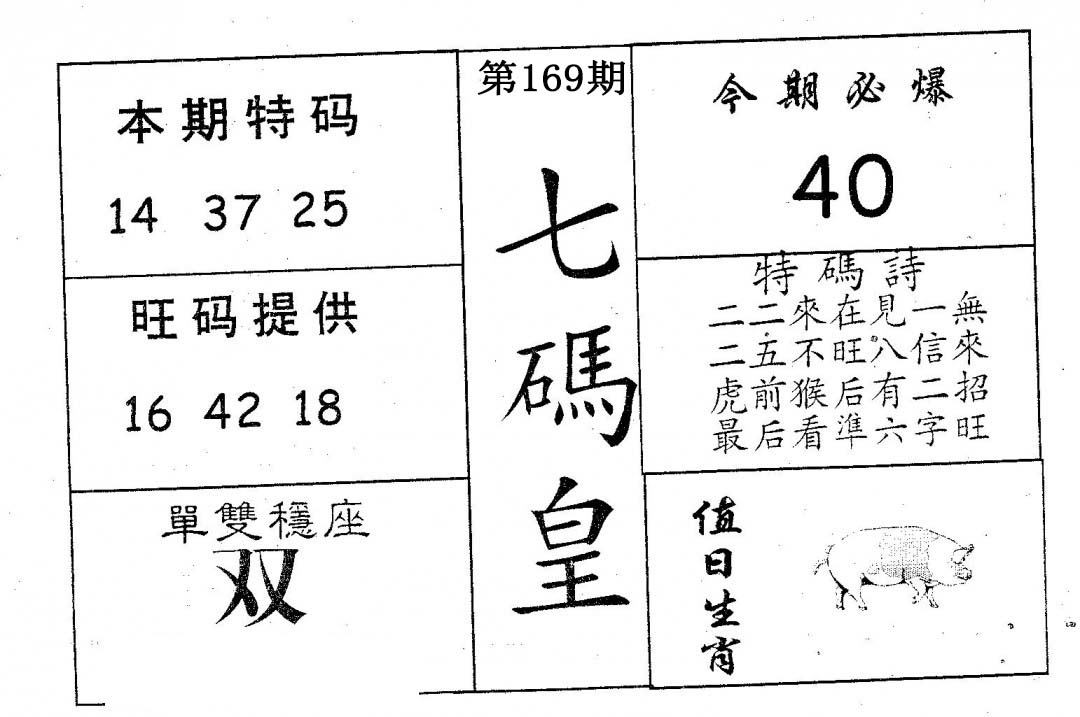 本期特码
14 37 25
旺码提供
16 42 18
單雙穩座
双
第169期
七碼皇
今期必爆
40
特碼詩
二二來在見一無
二五不旺八信來
虎前猴后有二招
最后看準六字旺
值日生肖